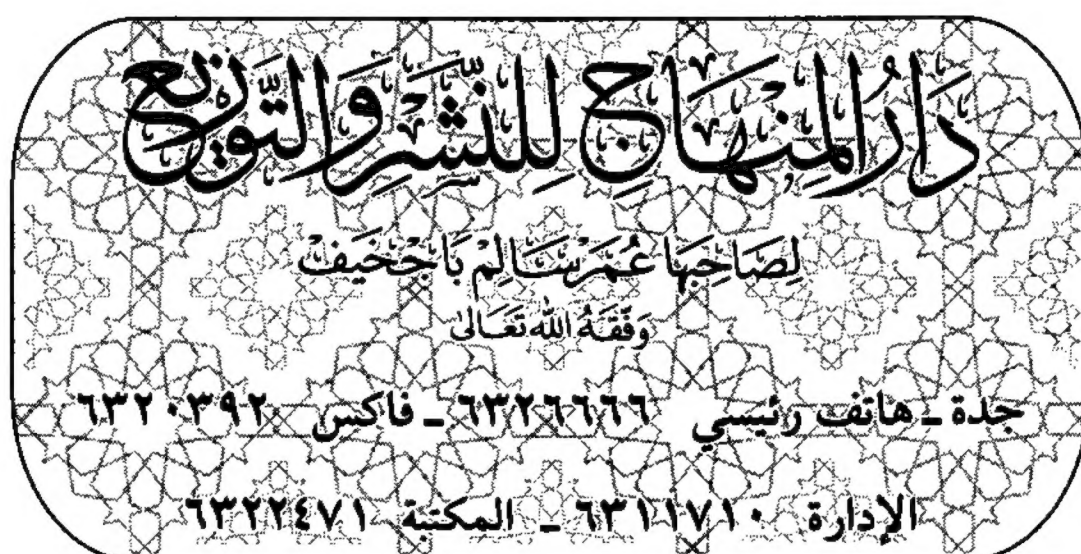 دَارُ المِنْهَاجِ لِلنَّشْرِ وَالتَّوْزِيعِ
لِصَاحِبِهَا عُمَرْ سَالِمْ بَاجْخَيفْ
وَفَّقَهُ اللهُ تَعَالىٰ
جدة ـ هاتف رئيسي ٦٣٢٦٦٦٦ ـ فاكس ٦٣٢٠٣٩٢
الإدارة ٦٣١١٧١٠ ـ المكتبة ٦٣٢٢٤٧١